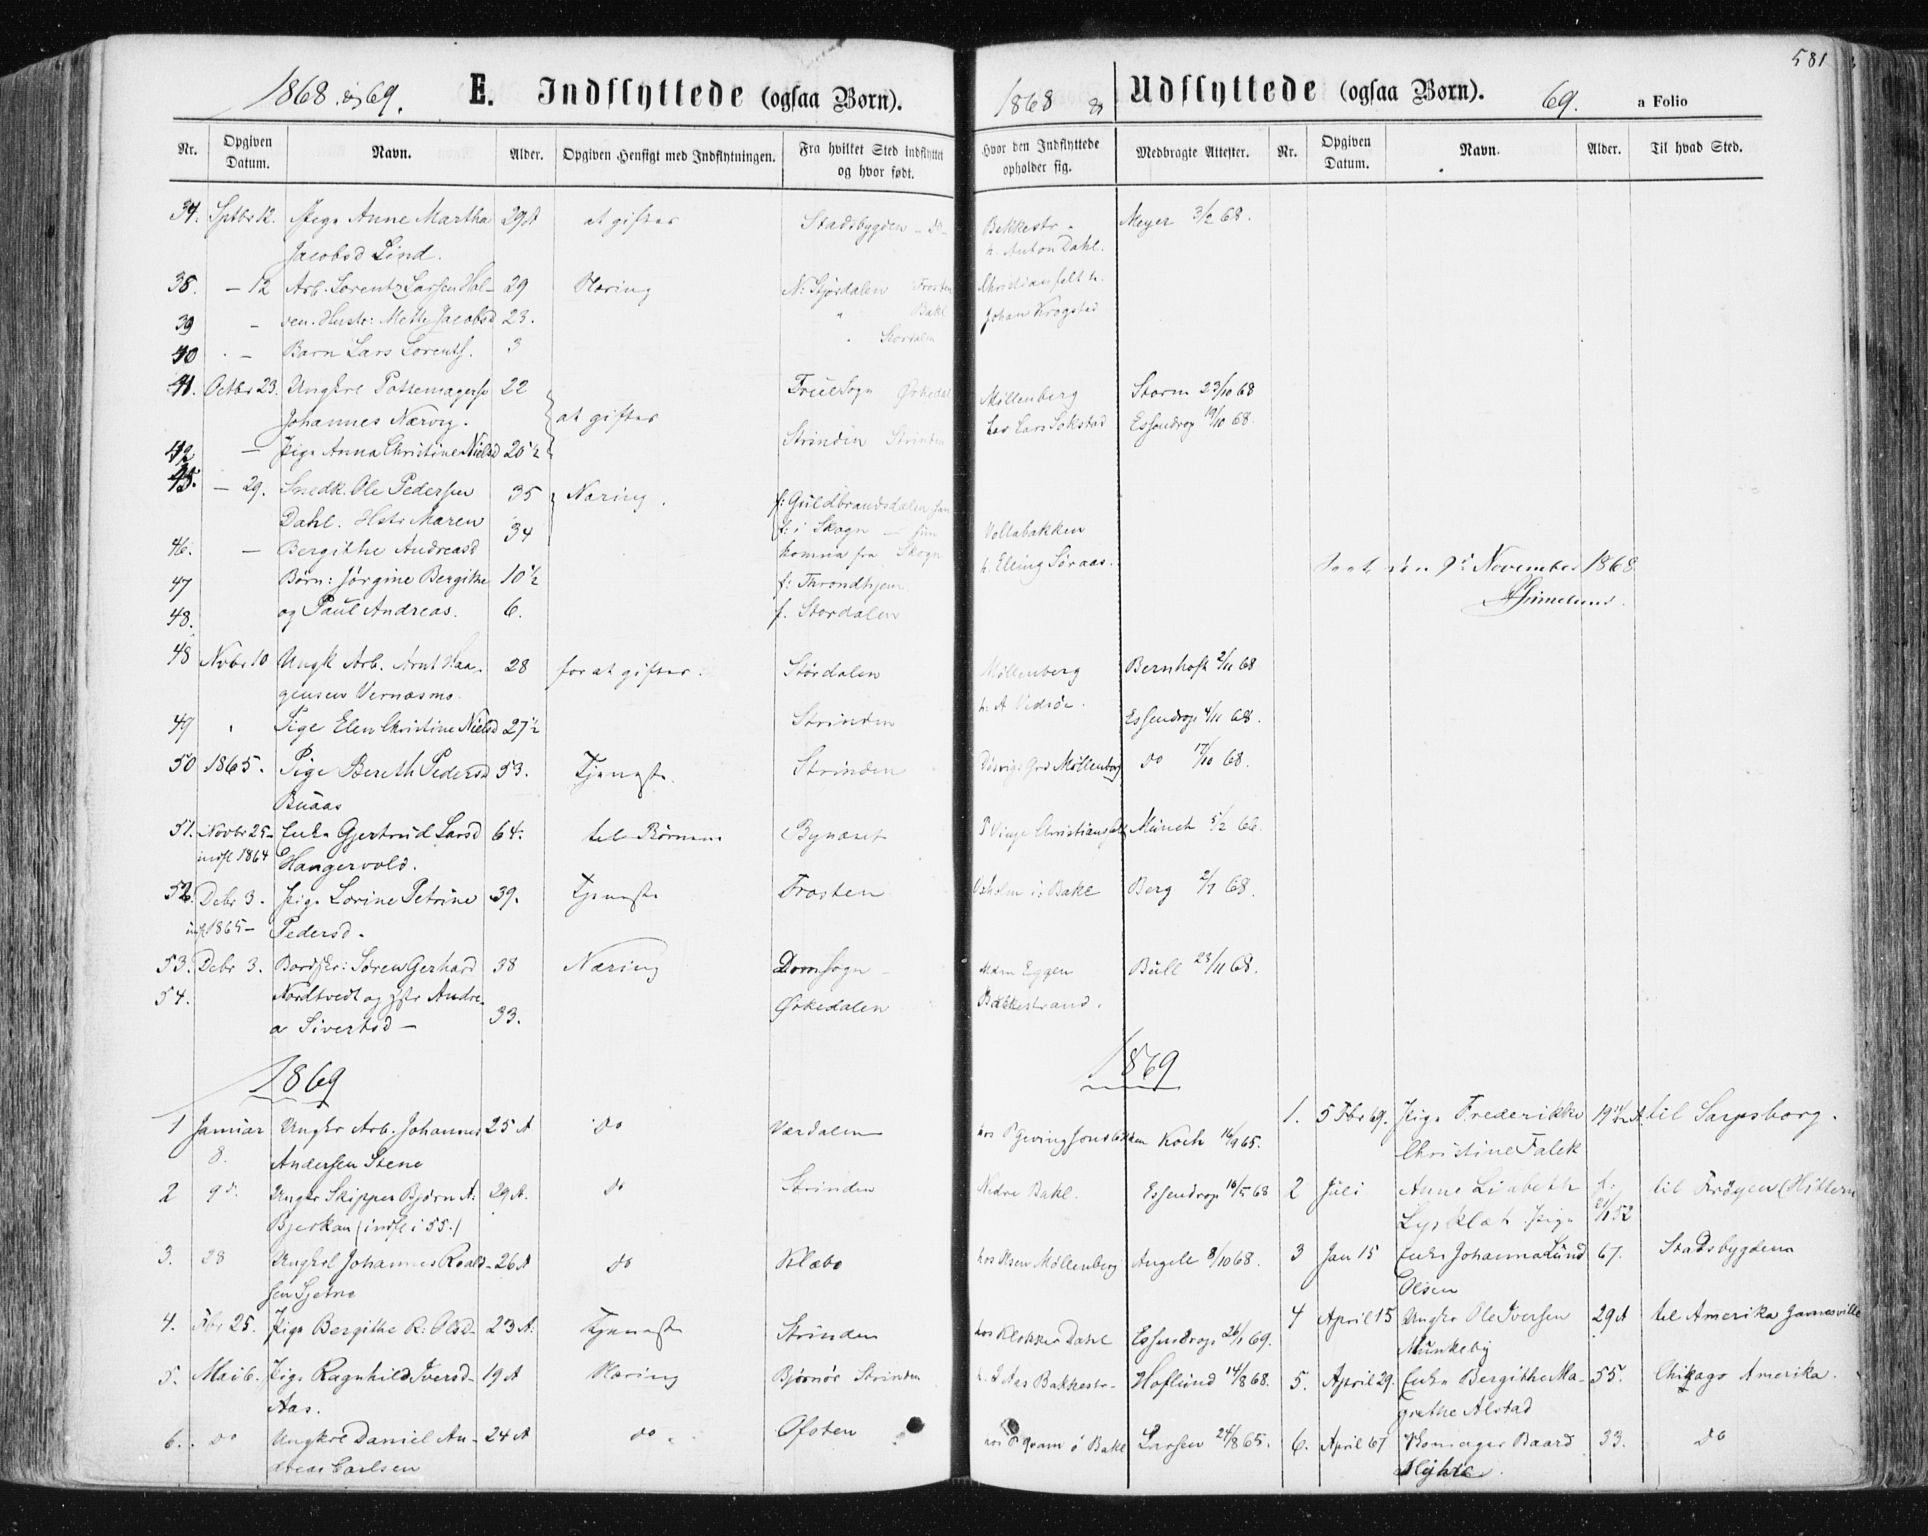 581
1868 og 69. E. Indflyttede (ogsaa Børn). 1868 & Udflyttede (ogsaa Børn). 69. a Folio
Nr. Opgiven Datum. Navn. Alder. Opgiven Hensigt med Indflytningen. Fra hvilket Sted indflyttet og hvor født. Hvor den Indflyttede opholder sig. Medbragte Attester. Nr. Opgiven Datum. Navn. Alder. Til hvad Sted.
Sptbr 12. Pige Anne Martha 29 A at giftes Stadsbygden - do - Bakkestr - Meyer 3/2 68.
Jacobsd Lind. h. Anton Dahl.
38. - 12 Arb. Lorentz Larsen Hal- 29 Næring N: Stjørdalen Frosten Christiansfelt h.
39 - ven. Hustr: Mette Jacobsd 23. " Bakl Johan Krogstad
40 - Barn Lars Lorents. 3 " Stordalen
41. Octbr 23. Ungkrl Pottemagersv 22 Fruesogn Ørkedal Møllenberg Storm 23/10 68
Johannes Nærvig. at giftes hos Lars Sokstad Essendrop 19/10 68.
42 - Pige Anna Christine Nielsd 20 1/2 Strinden Strinden
45. - 29. Snedk. Ole Pedersen 35 Næring. f: Guldbrandsdalen han
Dahl. Hstr Maren 34 f: i Skogn - hun Vollabakken
46. - Bergithe Andreasd komna fra Skogn h. Eling Søraas.
47 Børn: Jørgine Bergithe 10 1/2 f: Throndhjem November 1868
48. og Paul Andreas. 6. f. Stordalen
48 Novbr 10 Ungk Arb. Arnt Haa- 28 for at giftes. Stördalen Møllenberg Bernhoft 2/11 68
gensen Vernæsmo.
49 " Pige Elen Christine Nielsd 27 1/2 Strinden Essendrop 4/11 68.
50 1865. Pige Bereth Pedersd 53. Tjeneste. Strinden Grd Møllenberg do 17/10 68.
Buaas
51. Novbr 25 - Enke Gjertrud Larsd 64. til Børnene Bynæset Christiansfelt Münch 5/2 66.
indfl 1864 Haagervold.
52. Debr 3. Pige Lovine Petrine 39. Tjeneste Frosten i: Bakl Berg 2/1 68.
indfl 1865 - Pedersd -
53. Debr 3. Bordskr: Søren Gerhard 38 Næring Domsogn - Mdm Eggen Bull 23/11 68.
54. Nordtvedt og Hstr Andre- Bakkestrand.
a Sivertsd - 33. Ørkedalen
1869 1869
1 Januar Ungkr Arb. Johannes 25 A do Værdalen Koch 16/9 65. 1. 5 Fbr 69. Pige Frederikke 19 11/12 A til Sarpsborg.
8. Andersen Stene Christine Falck
2 9 d. Ungkr Skipper Bjørn A. 29 A. do Strinden Nedre Bakl. Essendrop 16/5 68 2 Juli Anne Lisabeth f: til Frøyen (Hittern
Bjerkan (indfl i 55.) Lysklæt Pige 21/1 52
3. 28 Ungkrl Johannes Roald- 26 A do Klæbo hos Olsen Møllenberg Angell 8/10 68. 3 Jan 15 Enke Johanna Lund 67. Stadsbygden
sen Sjetne Olsen
4. Fbr 25. Pige Bergithe R: Olsd- 23 A: Tjeneste Strinden hos Klokker Dahl Essendrop 26/1 69. 4 April 15 Ungkr Ole Iversen 29 A til Amerika Janesville
Munkeby
5. Mai 6. Pige Ragnhild Iversd- 19 A Næring Bjørnør Strinden h. A Aas Bakkestr- Hoflund 14/8 68. 5. April 29. Enke Bergithe Ma- 55. Chikago Amerika.
Aas. grethe Alstad
6. do Ungkrl Daniel An- 24 A do Ofoten hos P Gram ö Bakl Larsen 24/8 65. 6. April 67 Baard 33. do
dreas Carlsen Myhre.